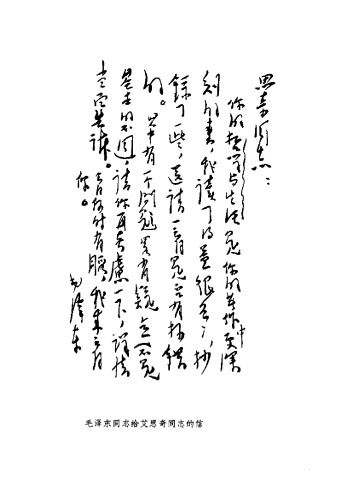 思奇同志：
你的哲学与生活是你的著作中更深
刻的書，我讀了得益很多，抄
錄了一些，送請一看是否有抄錯
的。其中有一个問題畧有疑点（不是
基本的不同），請你再考慮一下，詳情
当面告訴。今日何时有暇，我来看
你。
毛泽东
毛泽东同志给艾思奇同志的信